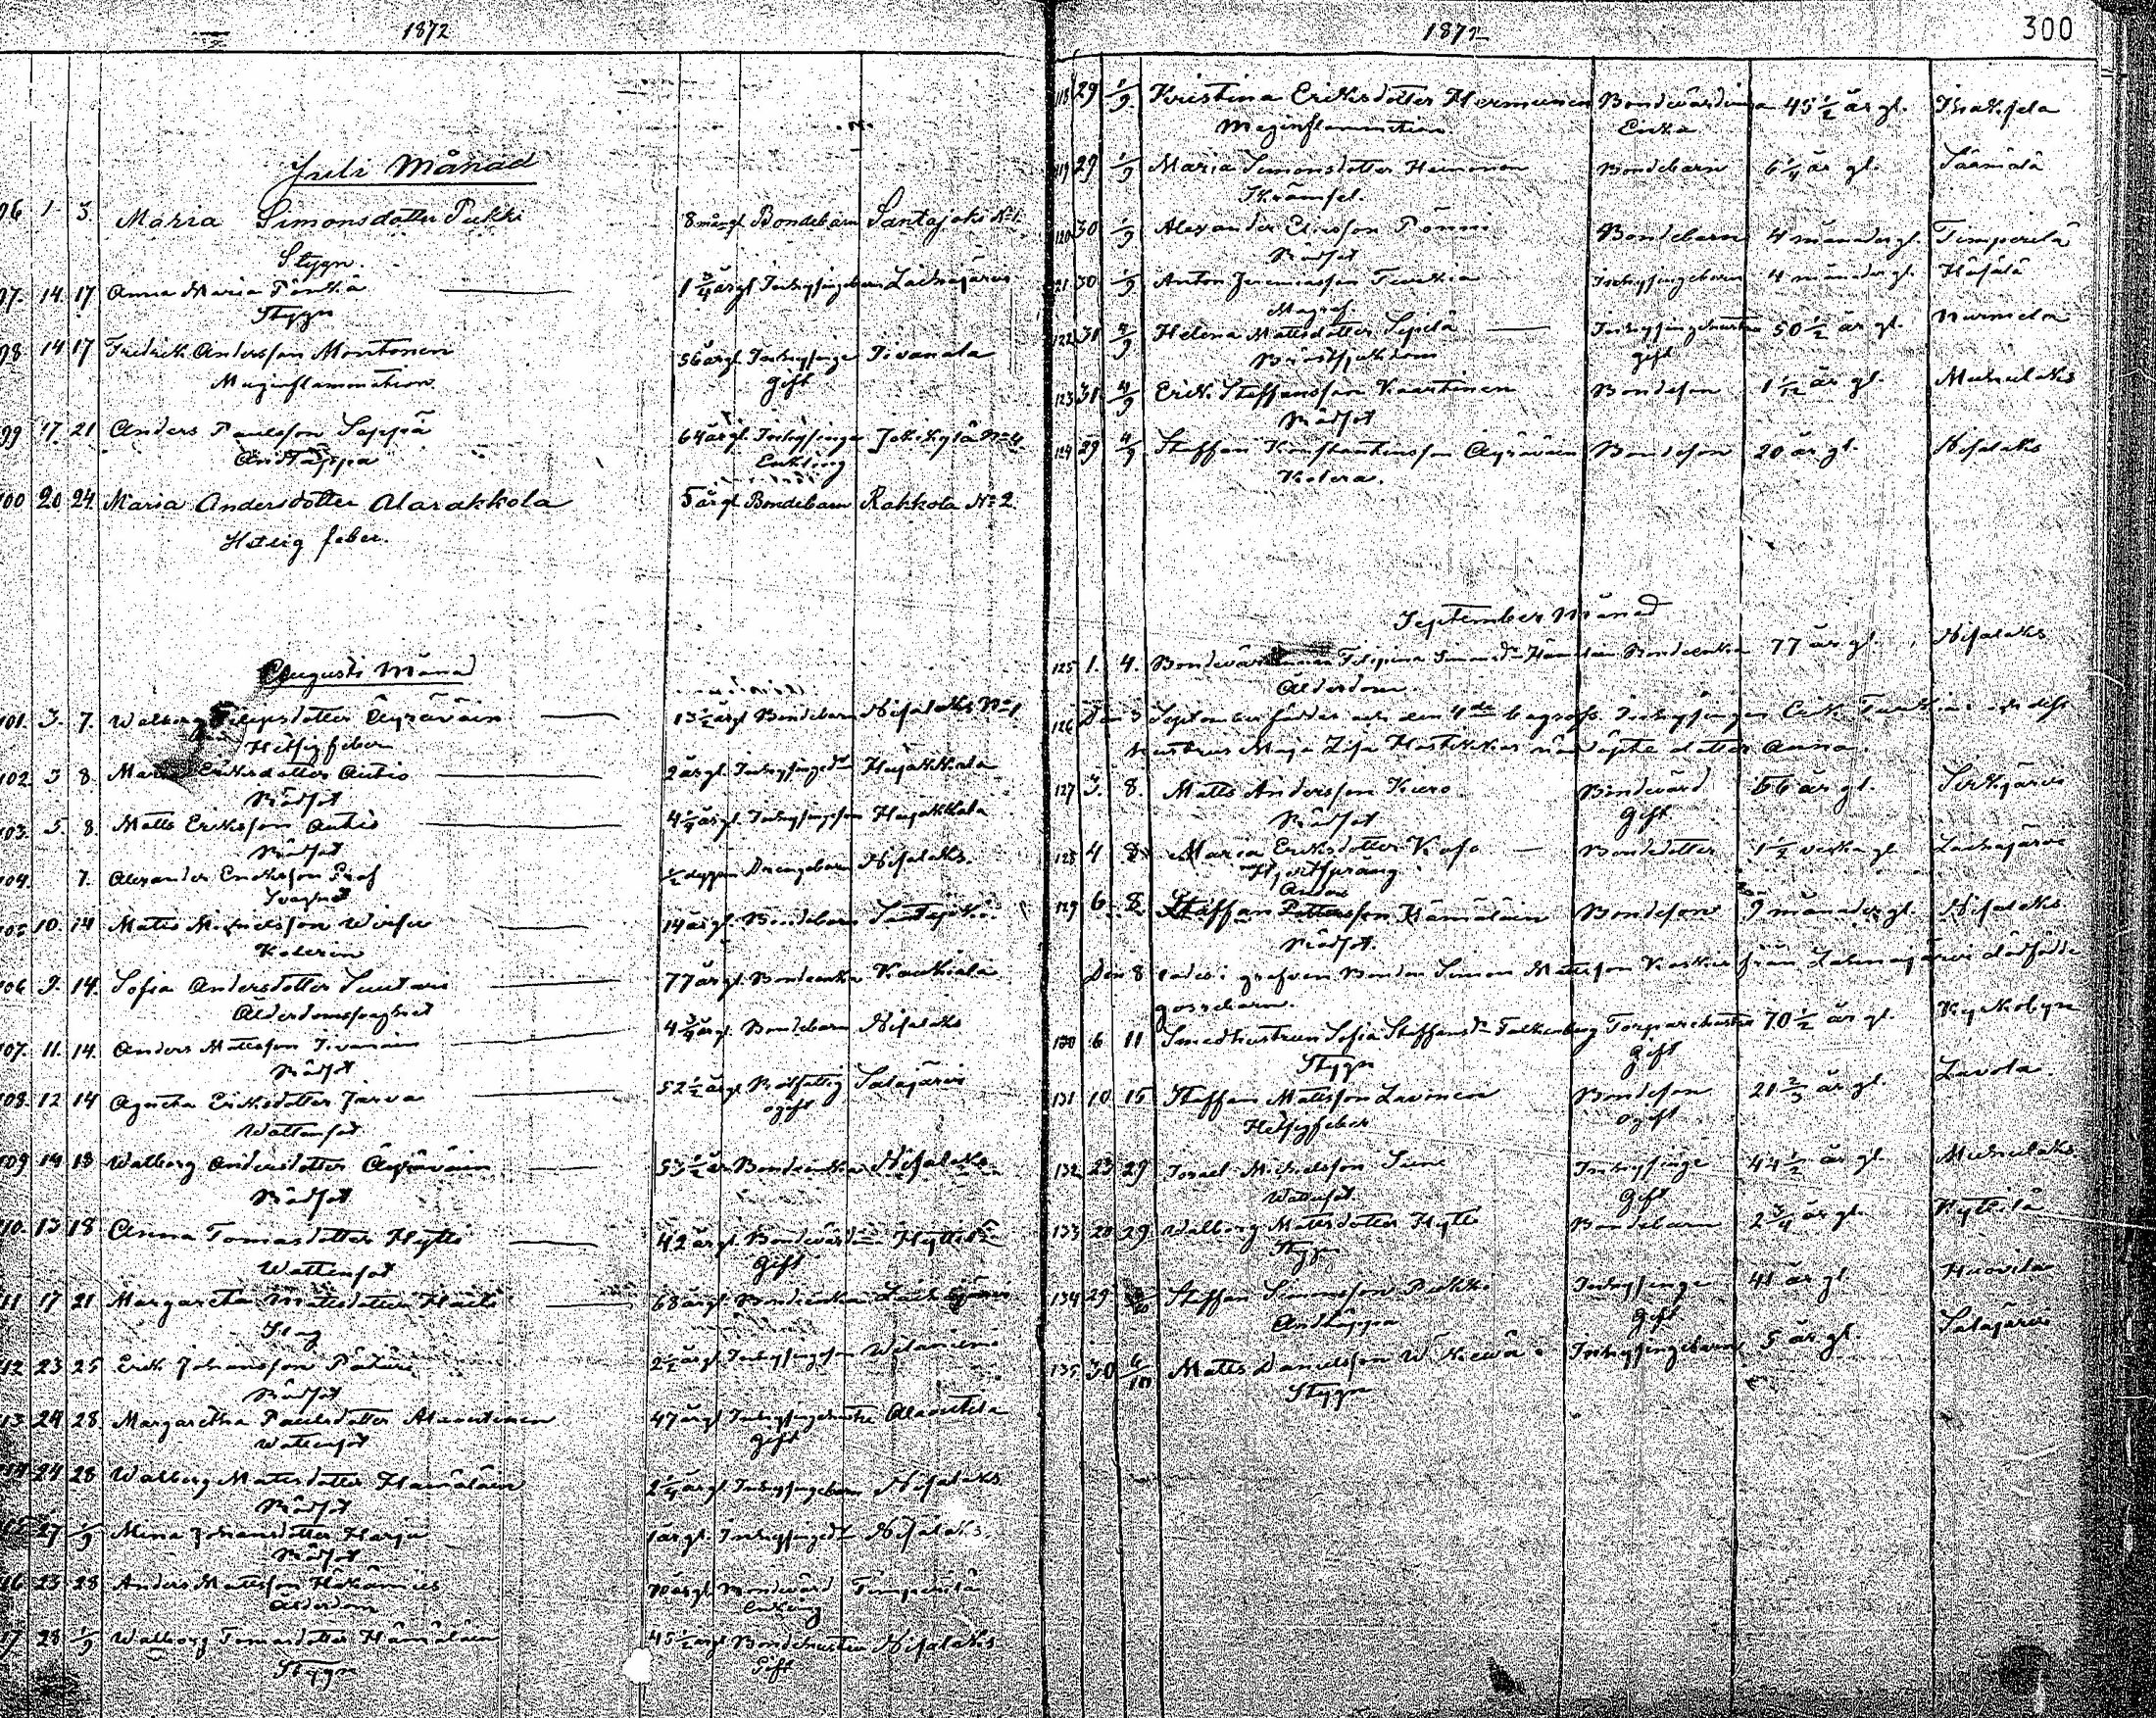 1872
Juli Månad
96 1. 3. Maria Simonsdotter Pukki 8 mån gl Bondebarn Santajoki No 1.
Stygn.
97. 14. 17 Anna Maria Pöntkä 1 3/4 årgl Inhysingebarn Lachnajärvi
Stygn
98 14 17 Fredrik Andersson Montonen 56 årgl. Inhysinge Tivanala
Maginflammation Gift
99 17. 21 Anders Paulsson Säppä 64 årgl. Inhysinge Jokikylä No 4
Andtäppa Enkling
100 20 24. Maria Andersdotter Alarakkola 5 årgl Bondebarn Rakkola No 2.
Hetsig feber.
Augusti Månad
101. 3. 7. Walborg Filipsdotter Äyräväin 13 1/2 årgl Bondebarn Nisalaks No 1
Hetsigfeber
102. 3 8. Maria Eriksdotter Autio 2 årgl. Inhysinged Hujakkala
Rödsot
103. 5. 8. Matts Eriksson Autio 4 1/4 årgl. Inhysingeson Hujakkala
Rödsot
104. 7. Alexander Eriksson 1/2 Drängebarn Nisalaks.
Svaghet
10. 14 Matts Michelsson 14 årgl. Bondebarn Santajoki
Kolerin
106 9. 14. Sofia Andersdotter Suutari 77 årgl. Bondeenka Kaukiala
Ålderdomssvaghet
107. 11. 14. Anders Mattsson 4 3/4 årgl. Bondebarn Nisalaks
Rödsot
108. 12 14 Agneta Eriksdotter Järva 52 1/2 årgl Rotfattig Salajärvi
Wattensot ogift
109 14 18 Walborg Andersdotter Äyräväin 53 1/2 år Bondeenka Nisalaks
Rödsot
110. 13 18 Anna Tomasdotter Hytti 42 årgl. Bondevärdinna
Wattensot Gift
111 17 21 Margareta Mattsdotter 68 årgl. Bondeenka
Slag
112 23 25 Erik Johansson 2 1/2 årgl Inhysingeson
Rödsot
113 24 28. Margaretha Paulsdotter 47 årgl Inhysingehustru Alaoutila
Wattensot Gift
114 24 28 Walborg Mattsdotter Hämäläin 2 1/4 årgl. Inhysingebarn Nisalaks
Rödsot
27 1/9 Mina Johansdotter Harju 1 årgl. Inhysinged Nisalaks.
Rödsot
116 23 28 Anders Mattsson 70 årgl Bondevärd Timperilä
Ålderdom Enkling
117 28 1/9 Walborg Tomasdotter Hämäläin 45 1/2 årgl Bondehustru Nisalaks
Stygn Gift
1872 300
118 29 1/9 Kristina Eriksdotter Hermunen Bondevärdinna 45 1/2 år gl.
Maginflammation Enka
119 29 1/9 Maria Simonsdotter Heinonen Bondebarn 6 1/4 år gl. Säämälä
Krämfel.
120 30 1/9 Alexander Ericsson Pönni Bondebarn 4 månader gl. Timperilä
Rödsot
121 30 1/9 Anton Jeremiasson Turkia Inhysingebarn 4 månader gl.
Magref
122 31 4/9 Helena Mattsdotter Sepilä Inhysingehustru 50 1/2 år gl. Nurmela
Bröstsjukdom gift
123 31. 4/9 Erik Staffansson Kaartinen Bondeson 1 1/12 år gl. Muhulaks
Rödsot
124 29 4/9 Staffan Konstantinsson Äyräväin Bondeson 20 år gl. Nisalaks
Kolera.
September Månad
125 1. 4. Filipina Simonsdr Hämäläin Bondeenka 77 år gl. Nisalaks
Ålderdom.
126 Den 3 September föddes och den 4de begrofs Inhysingen Erik och dess
hustrus Maja Lisa nöddöpte dotter Anna.
127 3. 8. Matts Andersson Kuro Bondevärd 66 år gl. Sirkjärvi
Rödsot Gift
128 4 8 Maria Eriksdotter Bondedotter 1 1/2 vecka gl Lachnajärvi
Hjertsprång
Anders
129 6. 8. Staffan Pettersson Hämäläin Bondeson 9 månader gl. Nisalaks
Rödsot.
Den 8 lades i grafven Bonden Simon Mattsson från Lahnajärvi dödfödde
gossebarn.
130 6 11 Smedhustrun Sofia Staffansdr Falkenberg Torparehustru 70 1/2 år gl. Kyrkobyn
Stygn Gift
131 10 15 Staffan Mattsson Lavonen Bondeson 21 2/3 år gl. Lavola.
Hetsigfeber ogift
132 23 29 Israel Michelsson Inhysinge 44 1/2 år gl. Muhulaks
Wattusot Gift
133 28 29 Walborg Mattsdotter Hytti Bondebarn 2 3/4 år gl. Hyttilä
Stygn
134 29 Staffan Simonsson Pukki Inhysinge 41 år gl. Huovila
Andtäppa Gift
135 30 6/10 Matts Danielsson Inhysingebarn 5 år gl. Salajärvi
Stygn